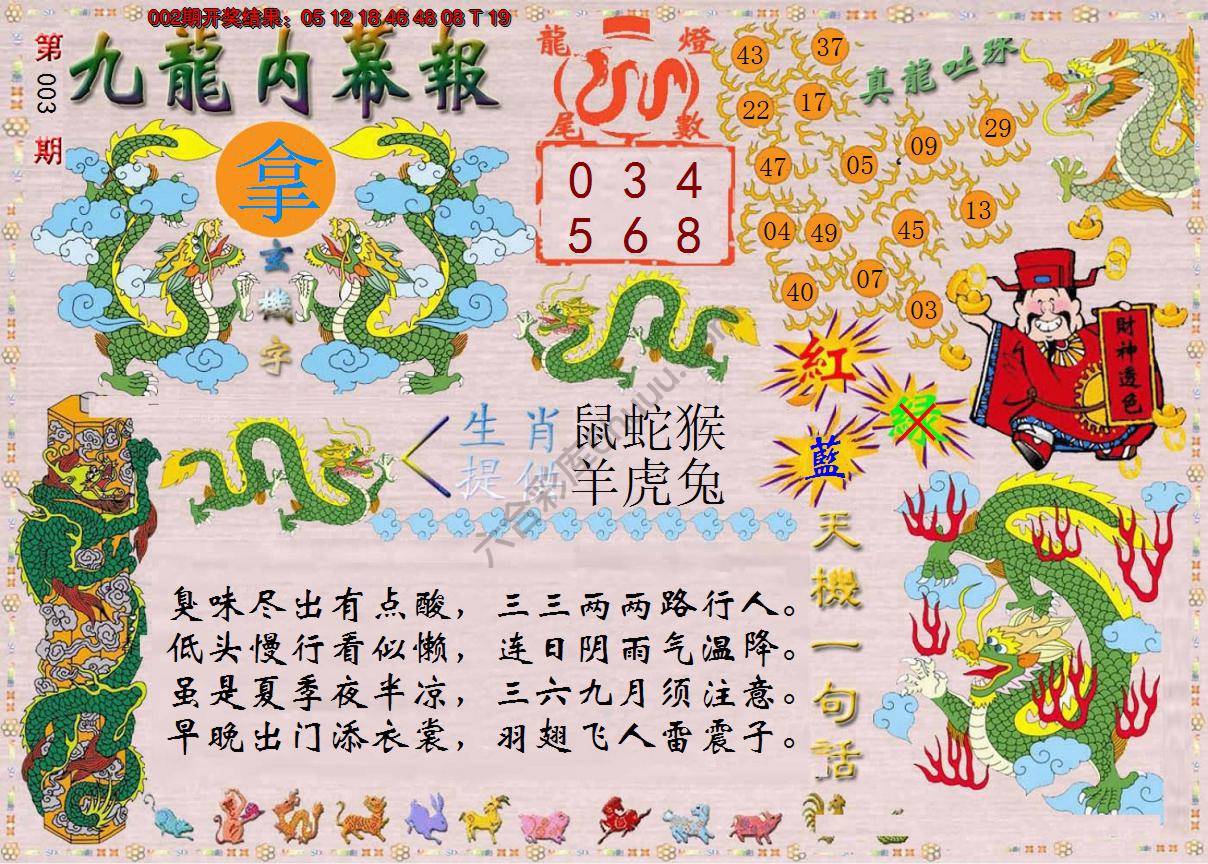 002期开奖结果：05 12 18 46 48 08 T 19
第003期
九龍内幕報
拿
玄機字
龍燈
尾數
0 3 4
5 6 8
真龍吐珠
43 37
22 17
47 05 09 29
04 49 45 13
40 07 03
財神透色
紅
绿
藍
生肖
提供
鼠蛇猴
羊虎兔
天機一句話
臭味尽出有点酸，三三两两路行人。
低头慢行看似懒，连日阴雨气温降。
虽是夏季夜半凉，三六九月须注意。
早晚出门添衣裳，羽翅飞人雷震子。